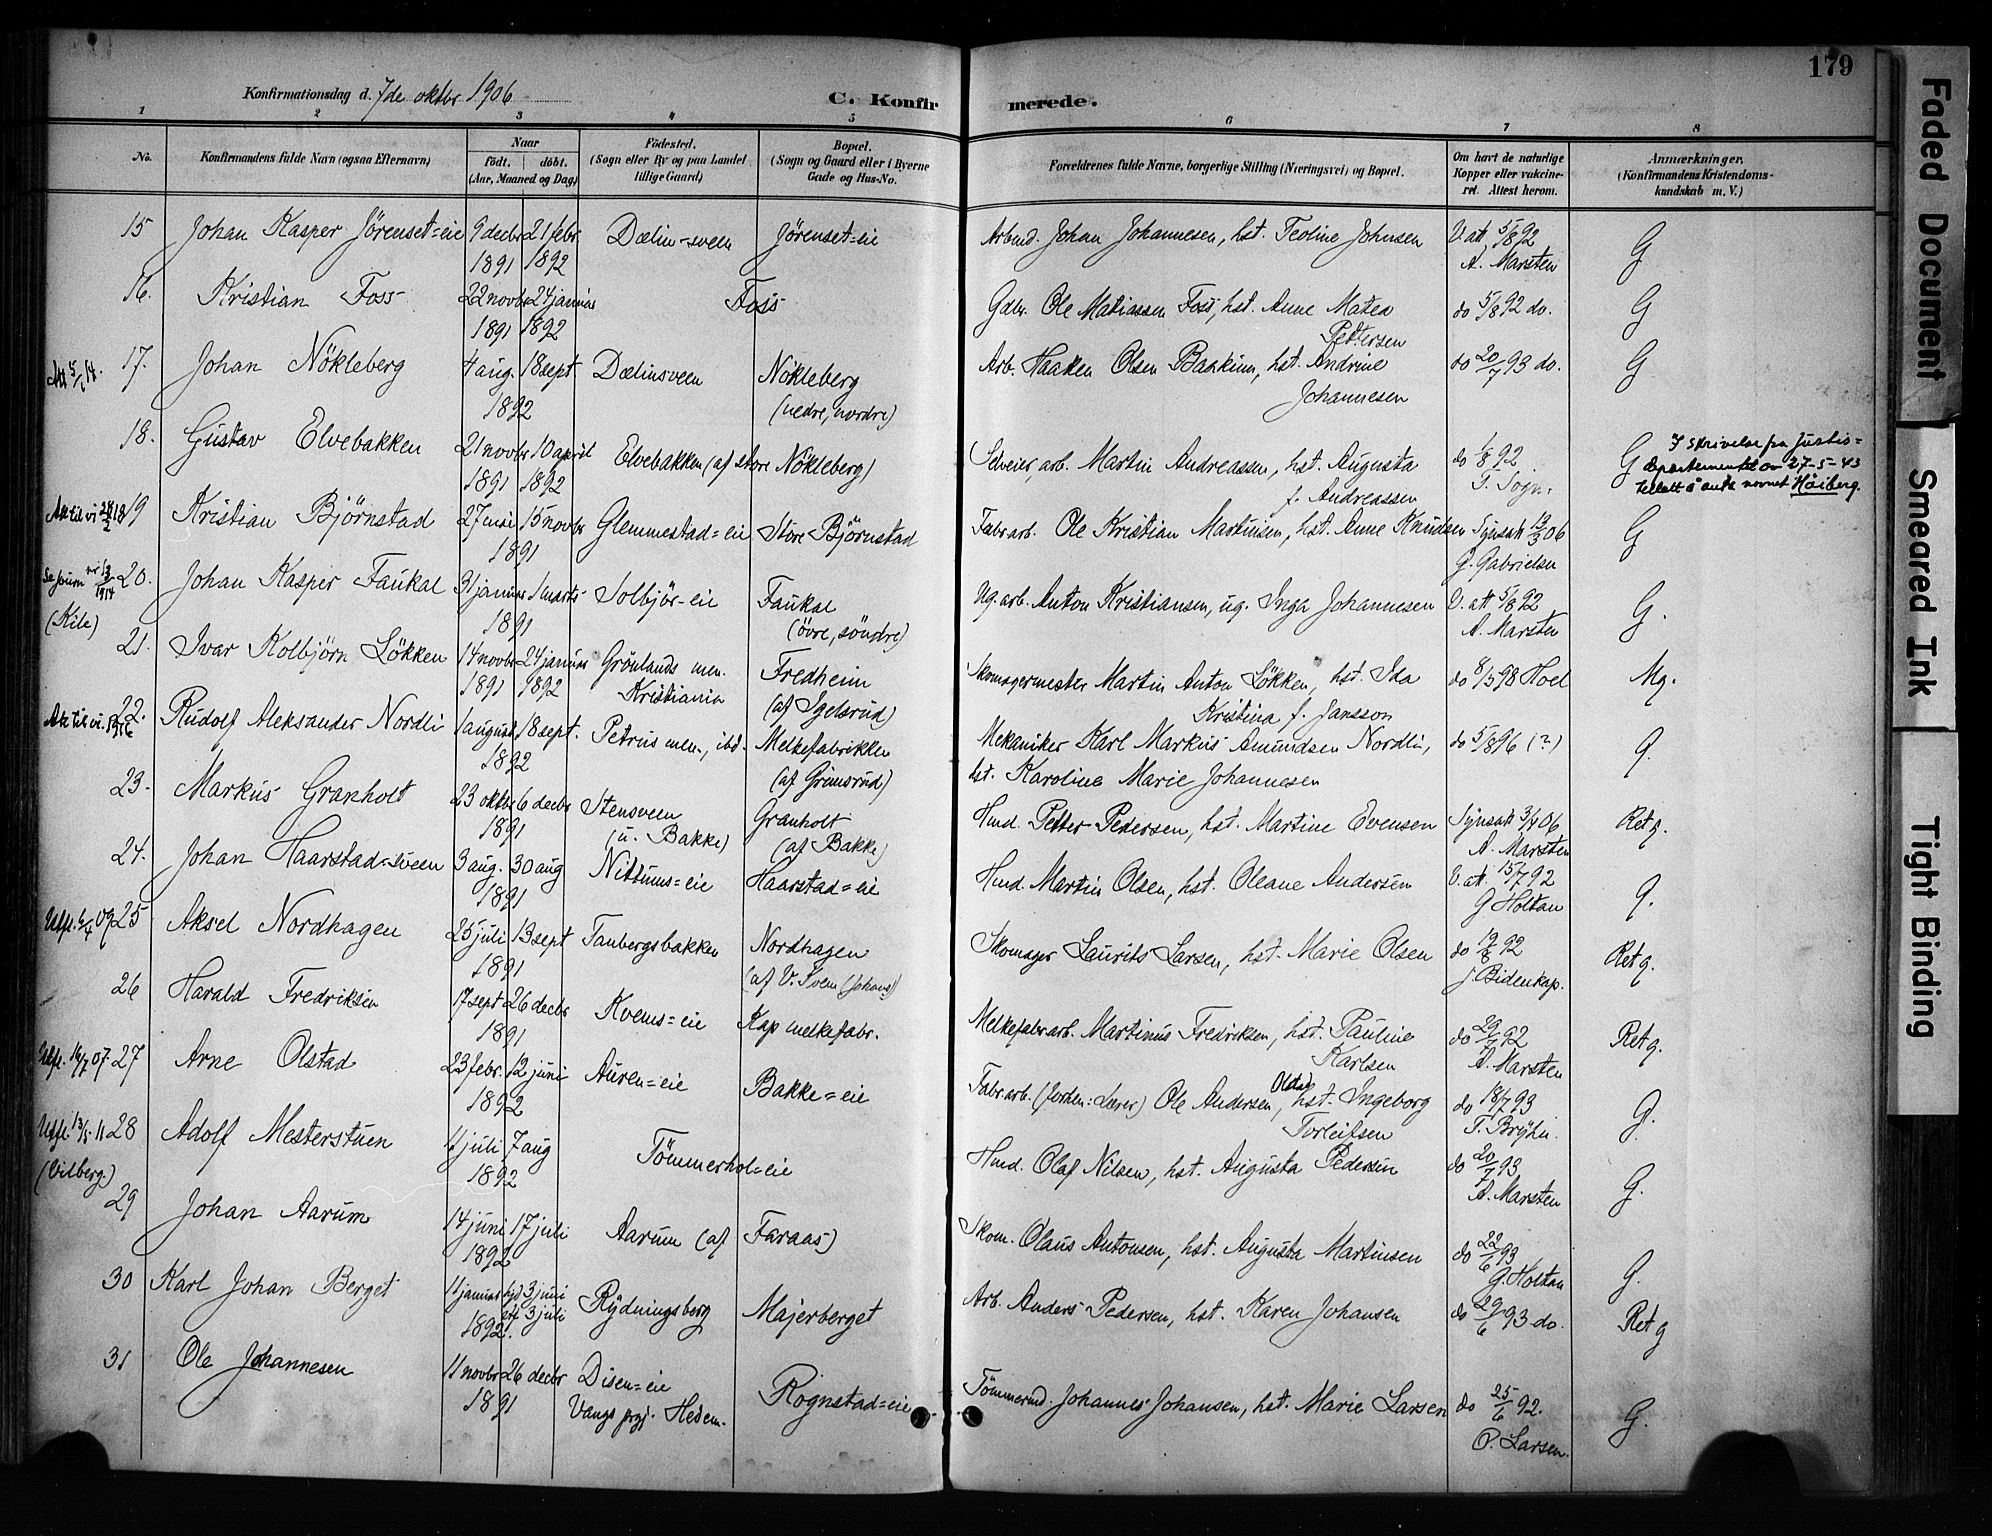 179
Konfirmationsdag d. 7de oktbr 1906
C. Konfirmerede.
1 2 3 4 5 6 7 8
No.
Konfirmandens fulde Navn (ogsaa Efternavn)
Naar
født. døbt.
(Aar, Maaned og Dag)
Fødested.
(Sogn eller By og paa Landet
tillige Gaard)
Bopæl.
(Sogn og Gaard eller i Byerne
Gade og Hus-No.
Forældrenes fulde Navne, borgerlige Stilling (Næringsvei) og Bopæl.
Om havt de naturlige
Kopper eller vakcine-
ret. Attest herom.
Anmærkninger.
(Konfirmandens Kristendoms-
kundskab m. V.)
15 Johan Kasper Jörenset=eie 9 decbr 1891 21 febr 1892 Dælin-sveen Jörenset=eie Arbmd. Johan Johannesen, hst. Teoline Johnsen V. att 5/8 92 A. Marsten G
16. Kristian Foss 22 novbr 1891 24 januar 1892 Foss Gdbr. Ole Matiassen Foss, hst. Anne Matea Pettersen do 5/8 92 do. G
Att 5/1 14. 17. Johan Nökleberg 4 aug. 18 sept 1892 Dælinsveen Nökleberg (nedre, nordre) Arb. Haaken Olsen Baakinn, hst. Andrine Johannesen do 20/7 93 do. G
18. Gustav Elvebakken 21 novbr 1891 10 april 1892 Elvebakken (af store Nökleberg) Selveier, arb. Martin Andreassen, hst. Augusta f. Andreassen do 1/8 92 T. Sogn. G
I skrivelse fra Justis=
departementet av 27-5-43
tillatt å anta navnet Höiberg.
19 Kristian Björnstad 27 mai 15 novbr 1891 Glemmestad=eie Store Björnstad Fabr.arb. Ole Kristian Martinsen, hst. Anne Knudsen Synsatt 13/3 06 G. Gabrielsen G
20. Johan Kasper Faukal 31 januar 1 marts 1891 Solbjör-eie Faukal (övre, söndre) Ug. arb. Anton Kristiansen, ug. Inga Johannesen V. att 5/8 92 A. Marsten G.
(Kile)
21. Ivar Kolbjörn Lökken 14 novbr 1891 24 januar 1892 Grönlands men. Kristiania Fredheim (af Igelsrud) Skomagermester Martin Anton Lökken, hst. Ida Kristina f. Jansson do 8/3 98 Hoel Mg.
22. Rudolf Aleksander Nordli 1 august 18 sept. 1892 Petrus men., ibd. Melkefabrikken (af Grimsrud) Mekaniker Karl Markus Amundsen Nordli, hst. Karoline Marie Johannesen do 5/8 96 (?) g.
23. Markus Granholt 23 oktbr 6 decbr 1891 Stensveen (u. Bakke) Granholt (af Bakke) Hmd. Petter Pedersen, hst. Martine Evensen Synsatt 3/4 06 A. Marsten Ret g.
24. Johan Haarstad=sveen 3 aug. 30 aug 1891 Nittums=eie Haarstad=eie Hmd. Martin Olsen, hst. Oleane Andersen V. att. 15/7 92 G Holtan g.
Utfl. 6/4 09 25 Aksel Nordhagen 25 juli 13 sept 1891 Taubergsbakken Nordhagen (af V. Sveen (Johans)) Skomager Laurits Larsen, hst. Marie Olsen do 19/8 92 J Bidenkap. Ret g.
26 Harald Fredriksen 17 sept 26 decbr 1891 Kvems=eie Kap melkefabr. Melkefabr.arb. Martinus Fredriksen, hst. Pauline Karlsen do 29/7 92 A. Marsten Ret g.
Utfl. 16/7 07 27 Arne Olstad 23 febr. 12 juni 1892 Auren=eie Bakke=eie Fabr.arb. (forhen: Lærer) Ole Andersen Olstad, hst. Ingeborg Torleifsen do 18/7 93 T. Bryhn. G.
Utfl. 13/5 11 28 Adolf Mesterstuen 11 juli 7 aug 1892 Tömmerhol=eie Hmd. Olaf Nilsen, hst. Augusta Pedersen do 20/7 93 A. Marsten G.
(Vilberg.)
29 Johan Aarum 14 juni 17 juli 1892 Aarum (af Faraas) Skom. Olaus Antonsen, hst. Augusta Martinsen do 22/6 93 G. Holtan G.
30 Karl Johan Berget 11 januar 1892. hjd 3 juni 3 juli Rydningsberg Majerberget Arb. Anders Pedersen, hst. Karen Johansen do 29/6 93 do. Ret g
31 Ole Johannesen 11 novbr 26 decbr 1891 Disen=eie Vangs prgj. Hedem. Rognstad=eie Tömmermd. Johannes Johansen, hst. Marie Larsen do 25/6 92. P. Larsen. G.
Faded Document
Smeared Ink
Tight Binding